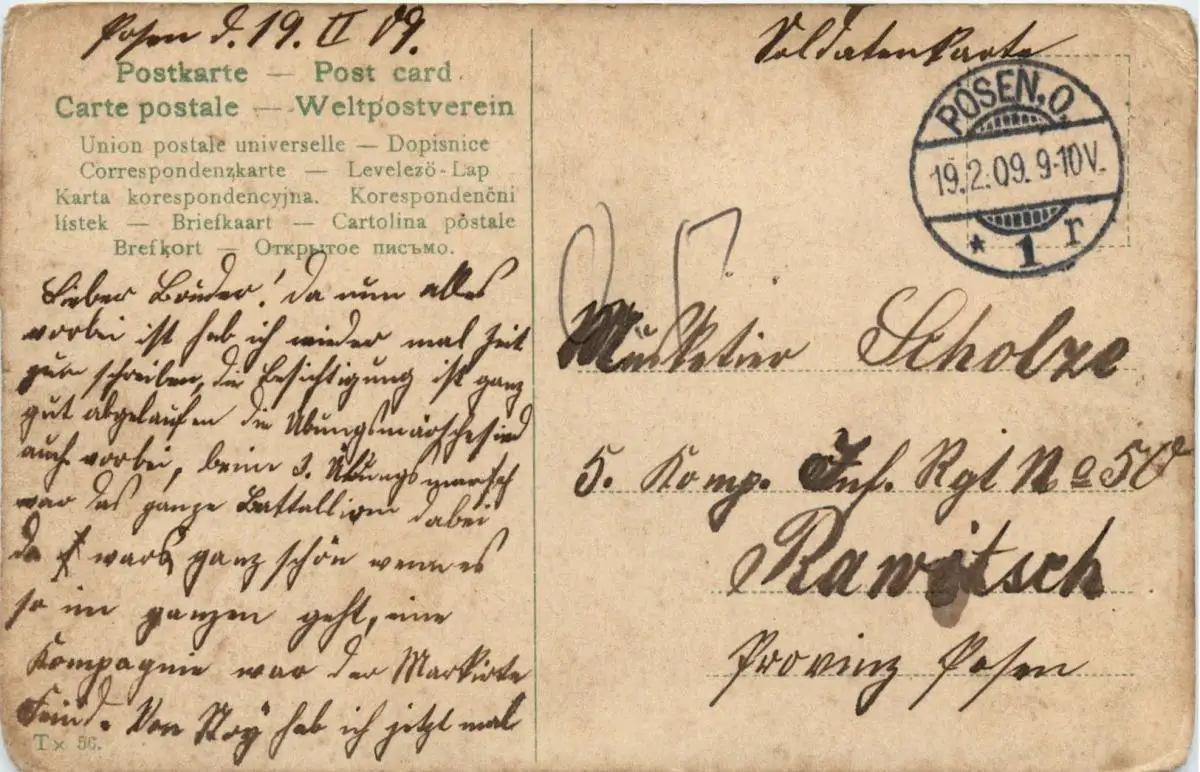 Posen d. 19. II 09.
Postkarte — Post card
Carte postale — Weltpostverein
Union postale universelle — Dopisnice
Correspondenzkarte — Levelező-Lap
Karta korespondencyjna. Korespondenční
lístek — Briefkaart — Cartolina postale
Brefkort — Открытое письмо.
Lieber Bruder! Da nun alles
vorbei ist hab ich wieder mal Zeit
zur schreiben, die Besichtigung ist ganz
gut abgelaufen die Übungsmärsche sind
auch vorbei, beim 3. Übungsmarsch
war das ganze Battallion dabei
da wars ganz schön wenn es
so im ganzen geht, eine
Kompagnie war der Markirte
Feind. Von hab ich jetzt mal
Tx 56.
Soldatenkarte
POSEN. O.
19.2.09. 9-10V.
* 1 r
Musketier Scholze
5. Komp. Inf. Rgt No 50
Rawitsch
Provinz Posen